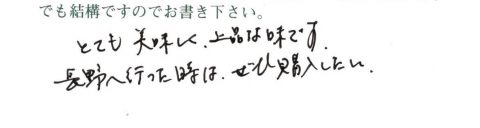 でも結構ですのでお書き下さい。
とても美味しく、上品な味です。
長野へ行った時は、ぜひ購入したい。